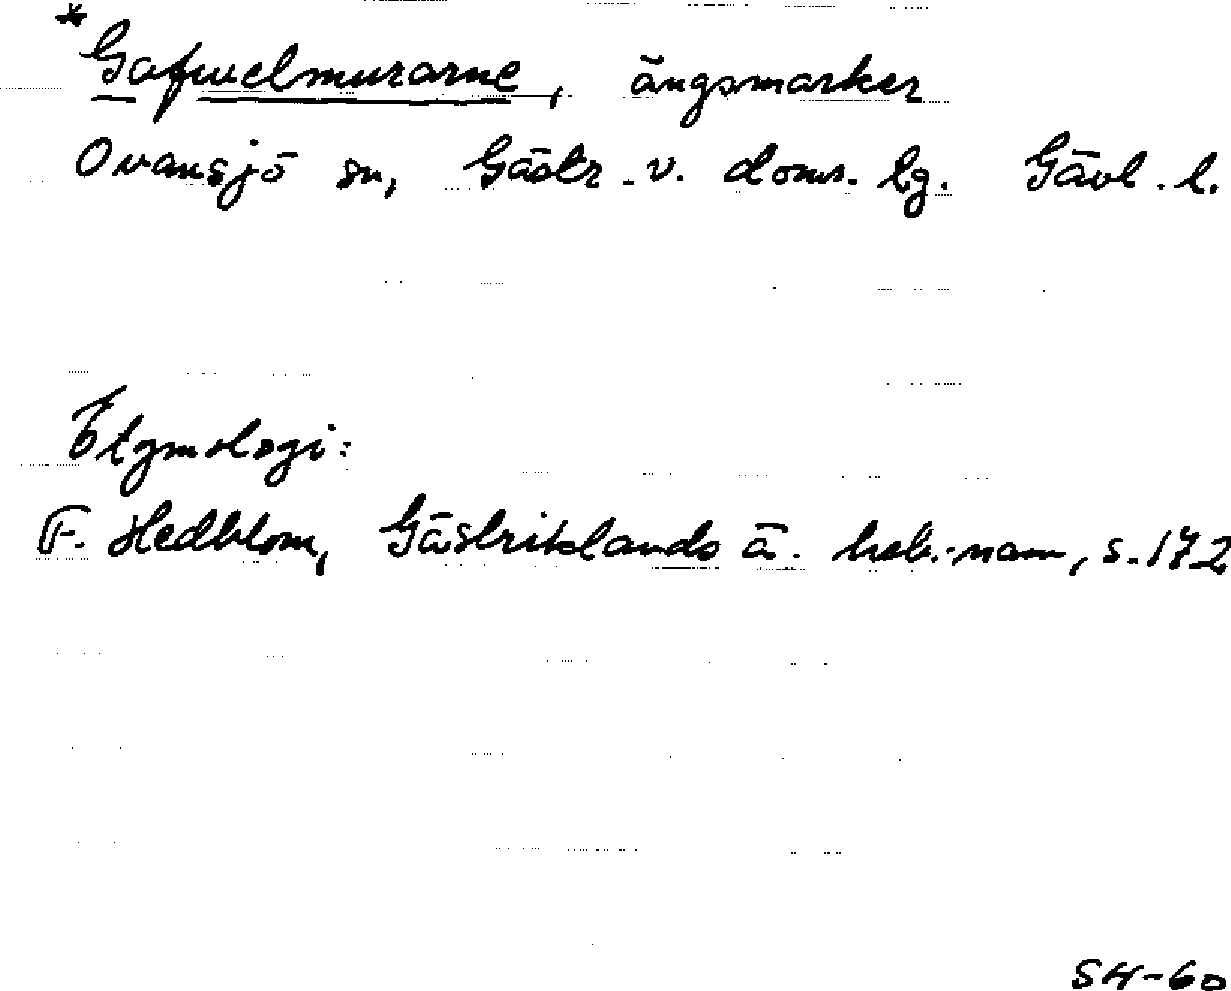 *Gafuuelmurarne, ängsmarker
Ovansjö sn, Gästr. v. doms. lg. Gävl. l.
Etymologi:
F. Hedblom, Gästriklands ä. beb.-namn, s. 172
SH-60